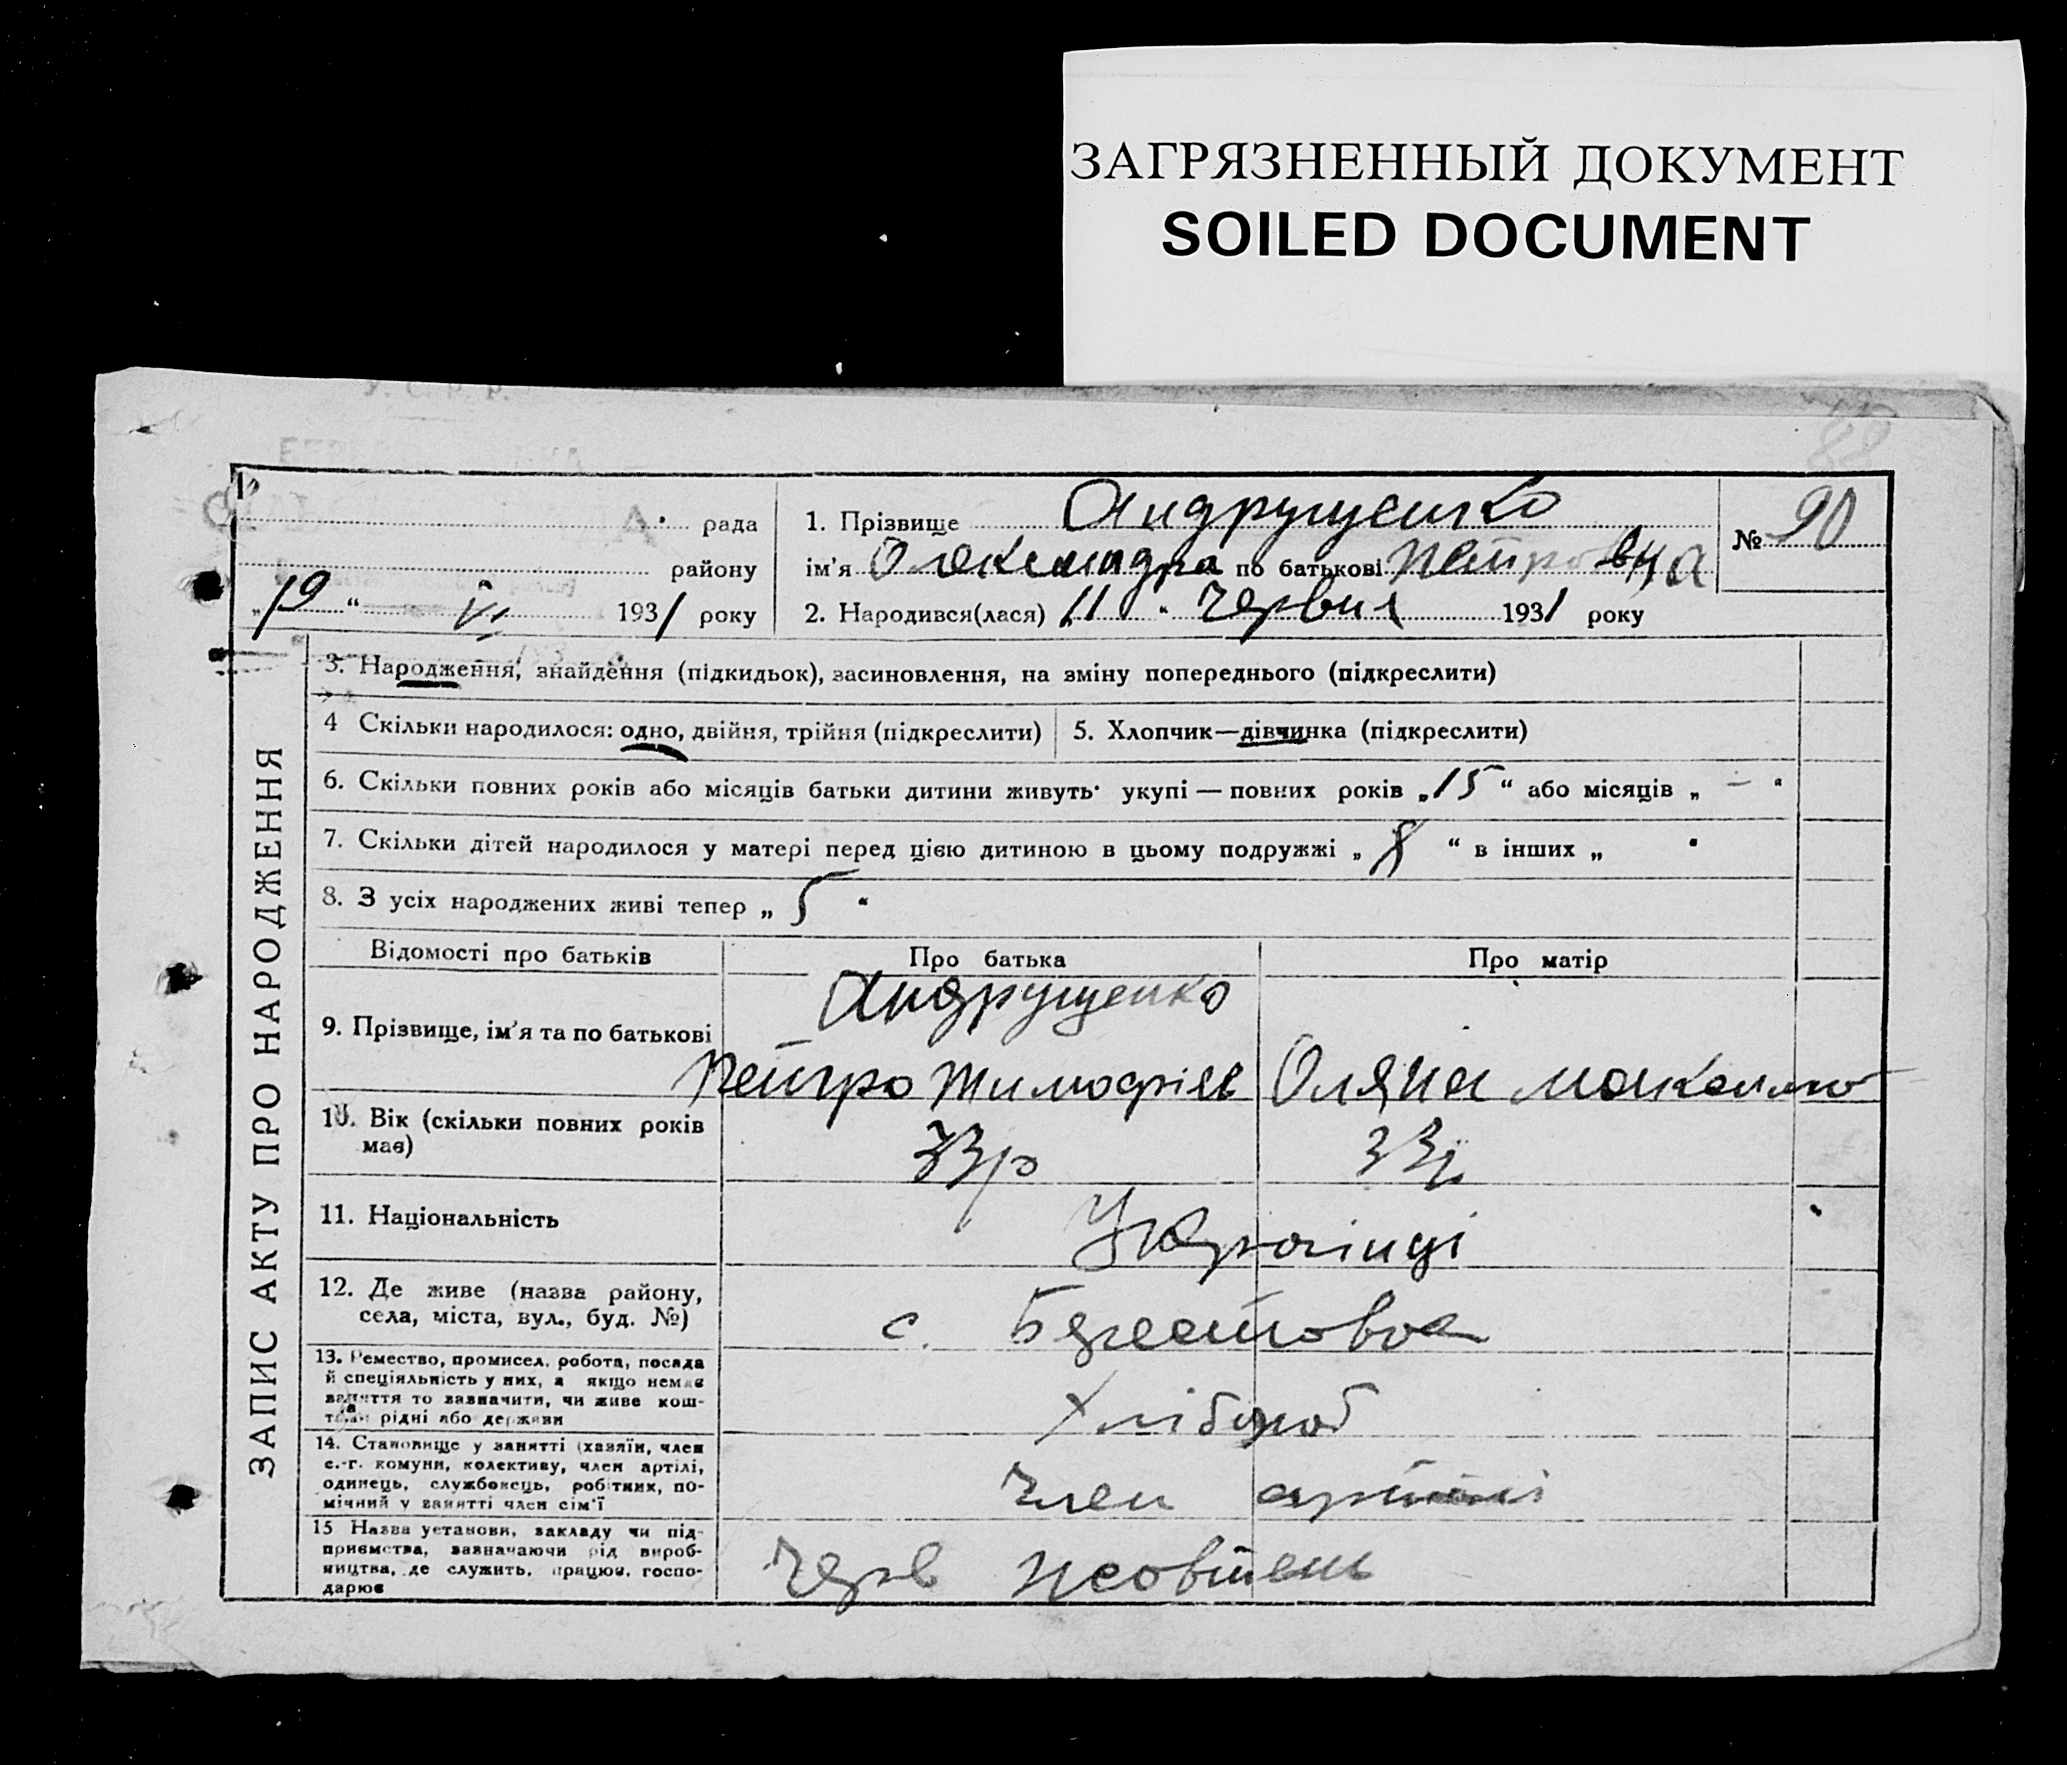 ЗАГРЯЗНЕННЫЙ ДОКУМЕНТ
SOILED DOCUMENT
У. С. Р. Р.
рада
району
„19“ VI 1931 року
1. Прізвище Андрущенко
ім'я Олександра по батькові Петровна
2. Народився(лася) „11“ Червня 1931 року
№ 90
ЗАПИС АКТУ ПРО НАРОДЖЕННЯ
3. Народження, знайдення (підкидьок), засиновлення, на зміну попереднього (підкреслити)
4 Скільки народилося: одно, двійня, трійня (підкреслити)
5. Хлопчик—дівчинка (підкреслити)
6. Скільки повних років або місяців батьки дитини живуть укупі — повних років „15“ або місяців „ — “
7. Скільки дітей народилося у матері перед цією дитиною в цьому подружжі „ 8 “ в інших „ “
8. З усіх народжених живі тепер „ 5 “
Відомості про батьків
Про батька
Про матір
9. Прізвище, ім'я та по батькові
Андрущенко
Петро Тимофієв
Оляна
10. Вік (скільки повних років має)
33р
33р
11. Національність
Українці
12. Де живе (назва району,
села, міста, вул., буд. №)
с. Берестовое
13. Ремество, промисел, робота, посада
й спеціяльність у них, а якщо немає
заняття то зазначити, чи живе кош-
том рідні або держави
Хлібороб
14. Становище у занятті (хазяїн, член
с.-г. комуни, колективу, член артілі,
одинець, службовець, робітник, по-
мічний у занятті член сім'ї
Член артілі
15 Назва установи, закладу чи під-
приємства, зазначаючи рід вироб-
ництва, де служить, працює, госпо-
дарює
Черв Жовтень